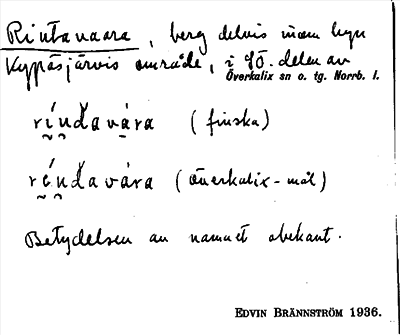 Rintavaara, berg delvis inom byn
Kypäsjärvis område, i SÖ. delen av
Överkalix sn o. tg. Norrb. l.
ríndavára (finska)
réndavára (överkalix-mål)
Betydelsen av namnet obekant.
EDVIN BRÄNNSTRÖM 1936.